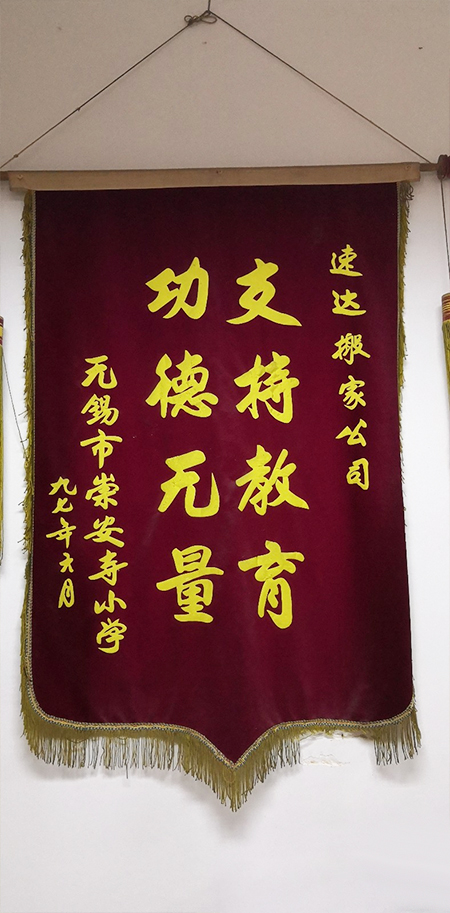 速达搬家公司
支持教育
功德无量
无锡市崇安寺小学
九七年六月